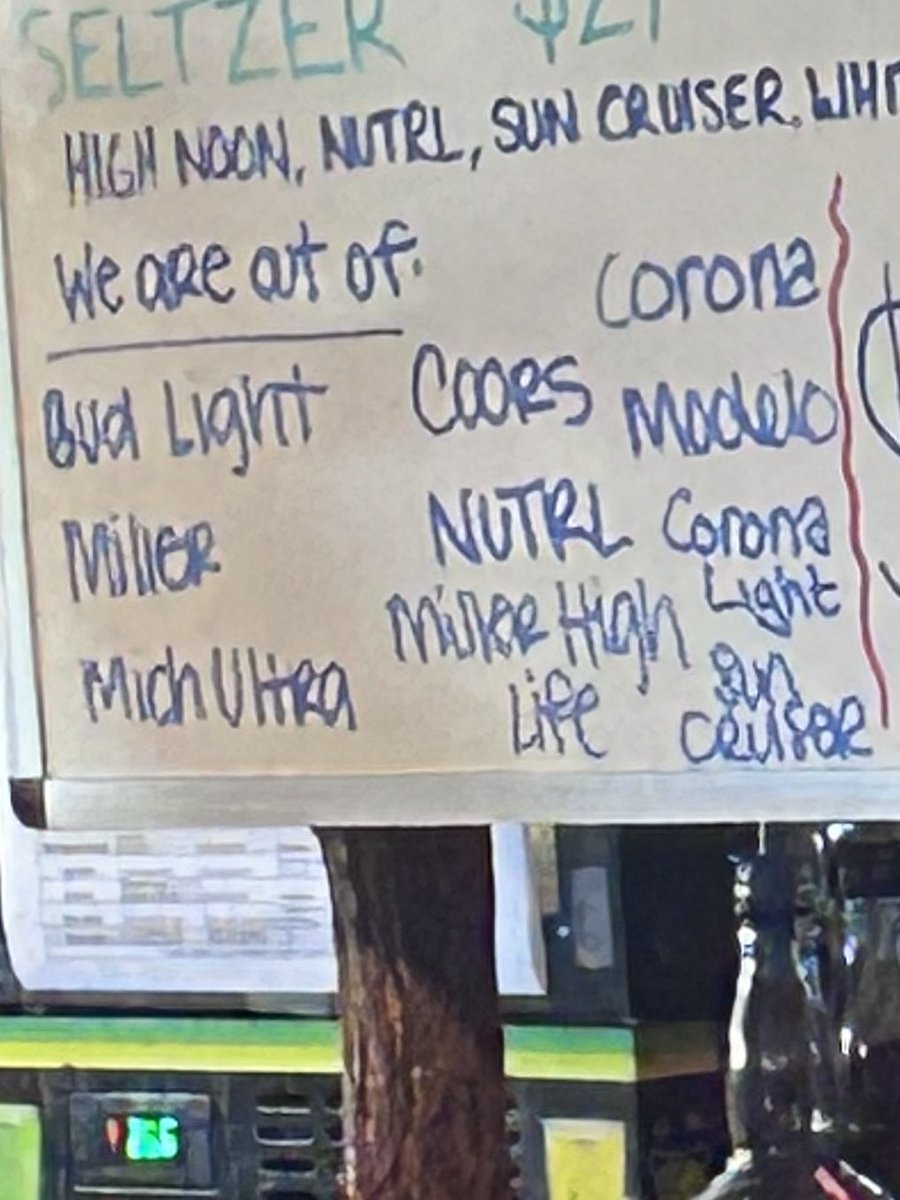 SELTZER $21
HIGH NOON, NUTRL, SUN CRUISER, WHIT
We are out of:
Corona
Bud Light
Coors
Modelo
Miller
NUTRL
Corona
Light
Mich Ultra
Miller High
Life
Sun
Cruiser